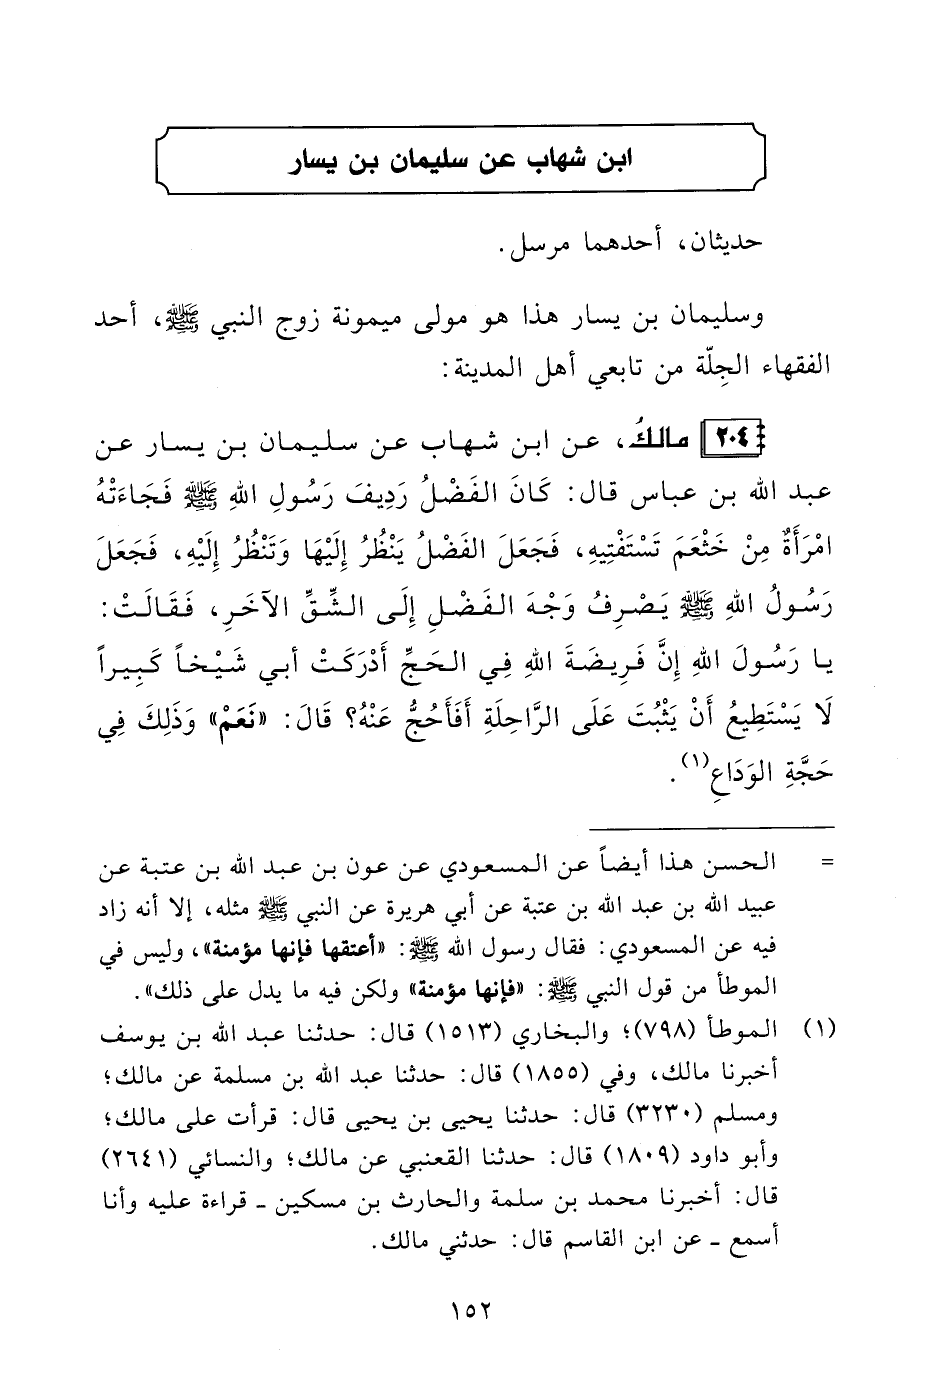 ابن شهاب عن سليمان بن يسار
حديثان، أحدهما مرسل.
وسليمان بن يسار هذا هو مولى ميمونة زوج النبي ﷺ، أحد
الفقهاء الجِلّة من تابعي أهل المدينة:
٢٠٤ مالكُ، عن ابن شهاب عن سليمان بن يسار عن
عبد الله بن عباس قال: كَانَ الفَضْلُ رَدِيفَ رَسُولِ اللهِ ﷺ فَجَاءَتْهُ
امْرَأَةٌ مِنْ خَثْعَمَ تَسْتَفْتِيهِ، فَجَعَلَ الفَضْلُ يَنْظُرُ إِلَيْهَا وَتَنْظُرُ إِلَيْهِ، فَجَعَلَ
رَسُولُ اللهِ ﷺ يَصْرِفُ وَجْهَ الفَضْلِ إِلَى الشِّقِّ الآخَرِ، فَقَالَتْ:
يا رَسُولَ اللهِ إِنَّ فَرِيضَةَ اللهِ فِي الحَجِّ أَدْرَكَتْ أبي شَيْخاً كَبِيراً
لَا يَسْتَطِيعُ أَنْ يَثْبُتَ عَلَى الرَّاحِلَةِ أَفَأَحُجُّ عَنْهُ؟ قَالَ: «نَعَمْ» وَذَلِكَ فِي
حَجَّةِ الوَدَاعِ(١).
= الحسن هذا أيضاً عن المسعودي عن عون بن عبد الله بن عتبة عن
عبيد الله بن عبد الله بن عتبة عن أبي هريرة عن النبي ﷺ مثله، إلا أنه زاد
فيه عن المسعودي: فقال رسول الله ﷺ: «أعتقها فإنها مؤمنة»، وليس في
الموطأ من قول النبي ﷺ: «فإنها مؤمنة» ولكن فيه ما يدل على ذلك».
(١) الموطأ (٧٩٨)؛ والبخاري (١٥١٣) قال: حدثنا عبد الله بن يوسف
أخبرنا مالك، وفي (١٨٥٥) قال: حدثنا عبد الله بن مسلمة عن مالك؛
ومسلم (٣٢٣٠) قال: حدثنا يحيى بن يحيى قال: قرأت على مالك؛
وأبو داود (١٨٠٩) قال: حدثنا القعنبي عن مالك؛ والنسائي (٢٦٤١)
قال: أخبرنا محمد بن سلمة والحارث بن مسكين ـ قراءة عليه وأنا
أسمع ـ عن ابن القاسم قال: حدثني مالك.
١٥٢